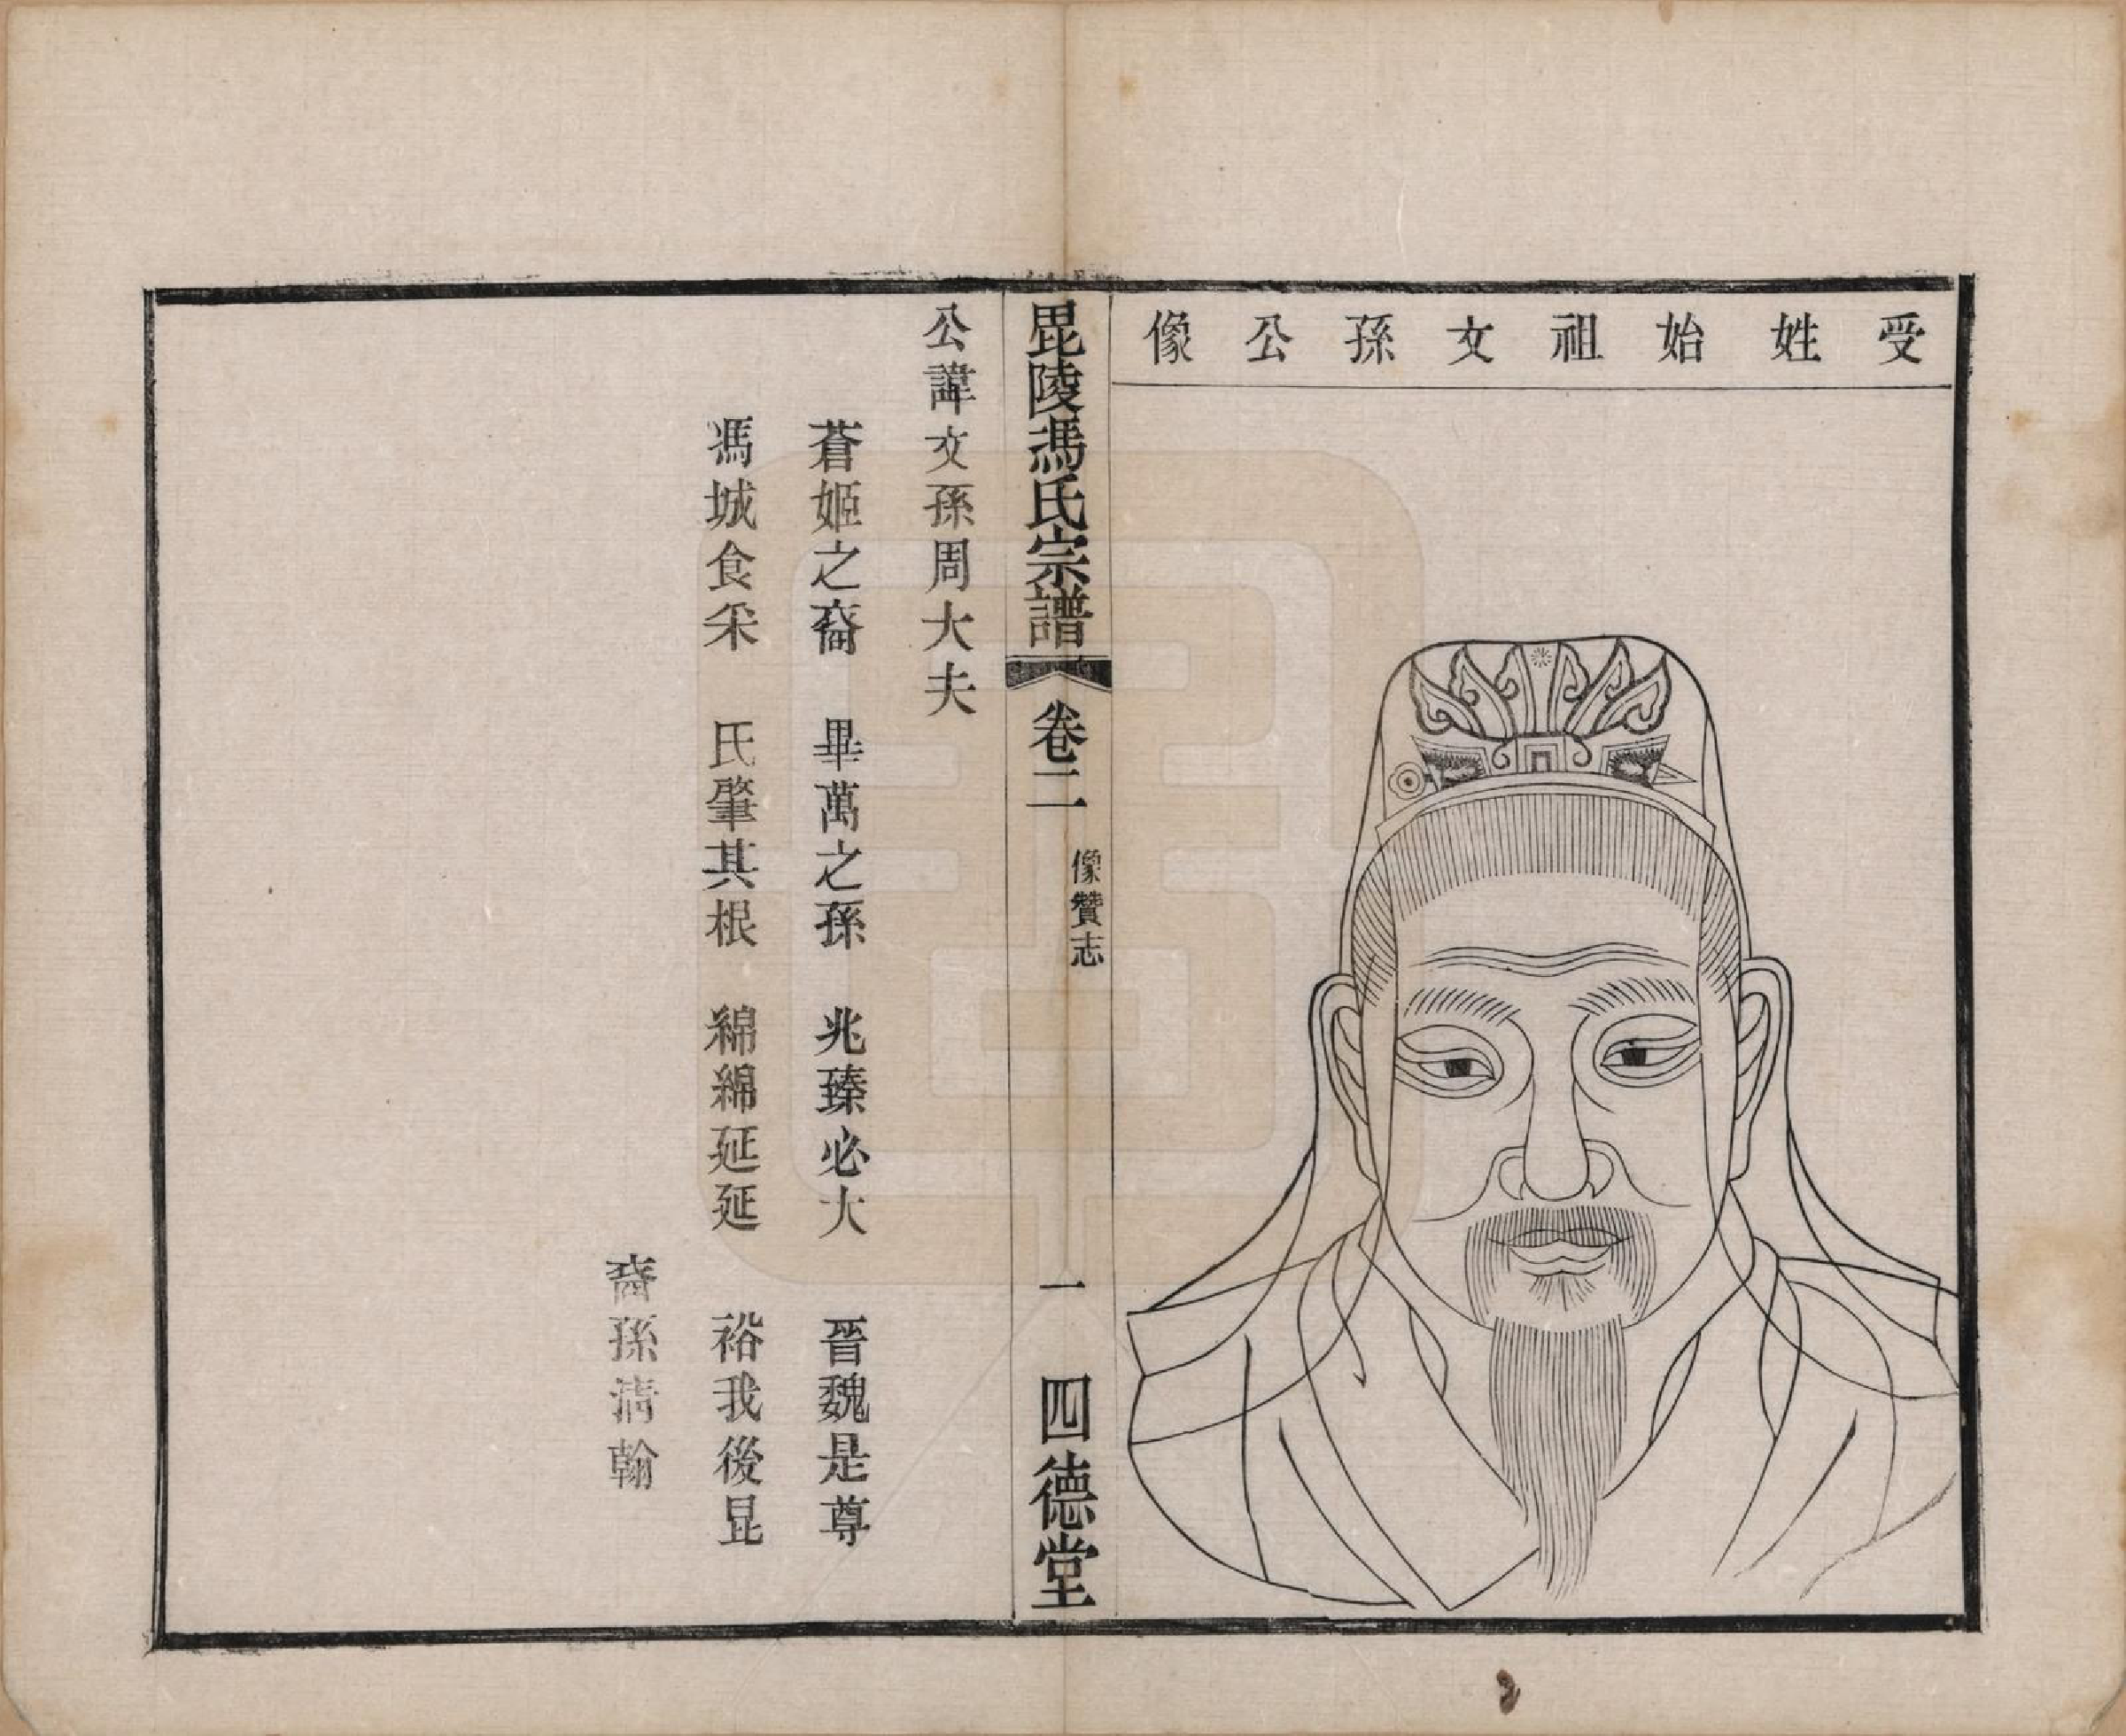 受姓始祖文孫公像
毘陵馮氏宗譜 卷二 像贊志 一 四德堂
公諱文孫周大夫
蒼姬之裔 畢萬之孫 兆臻必大 晉魏是尊
馮城食采 氏肇其根 綿綿延延 裕我後昆
裔孫清翰
2